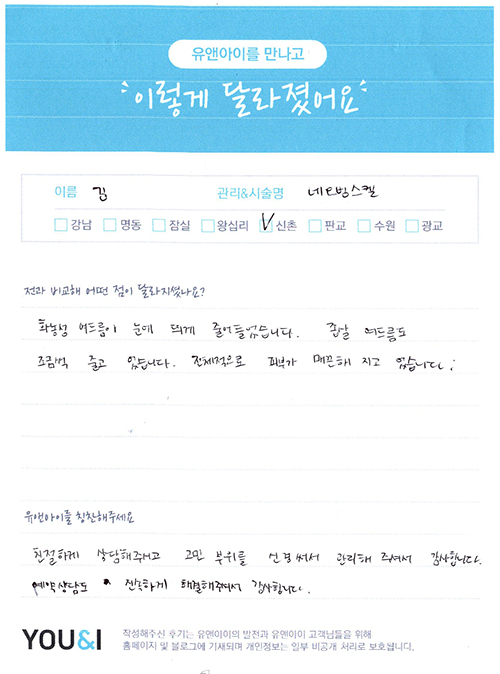 유앤아이를 만나고
이렇게 달라졌어요
이름 김 관리&시술명 네오빔스켈
강남 명동 잠실 왕십리 V 신촌 판교 수원 광교
전과 비교해 어떤 점이 달라지셨나요?
화농성 여드름이 눈에 띄게 줄어들었습니다. 좁쌀 여드름도
조금씩 줄고 있습니다. 전체적으로 피부가 매끈해 지고 있습니다;
유앤아이를 칭찬해주세요
친절하게 상담해주시고 고민 부위를 신경써서 관리해 주셔서 감사합니다.
예약상담도 신속하게 해결해주셔서 감사합니다.
YOU&I 작성해주신 후기는 유앤아이의 발전과 유앤아이 고객님들을 위해
홈페이지 및 블로그에 기재되며 개인정보는 일부 비공개 처리로 보호됩니다.